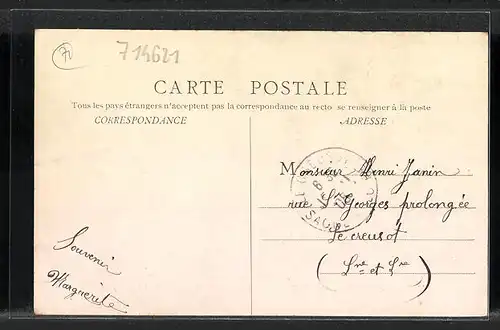 71
714621
CARTE POSTALE
Tous les pays étrangers n'acceptent pas la correspondance au recto se renseigner à la poste
CORRESPONDANCE
ADRESSE
Monsieur Henri Janin
rue St Georges prolongée
Le creusot
(Sne et Lre)
Souvenir
Marguerite